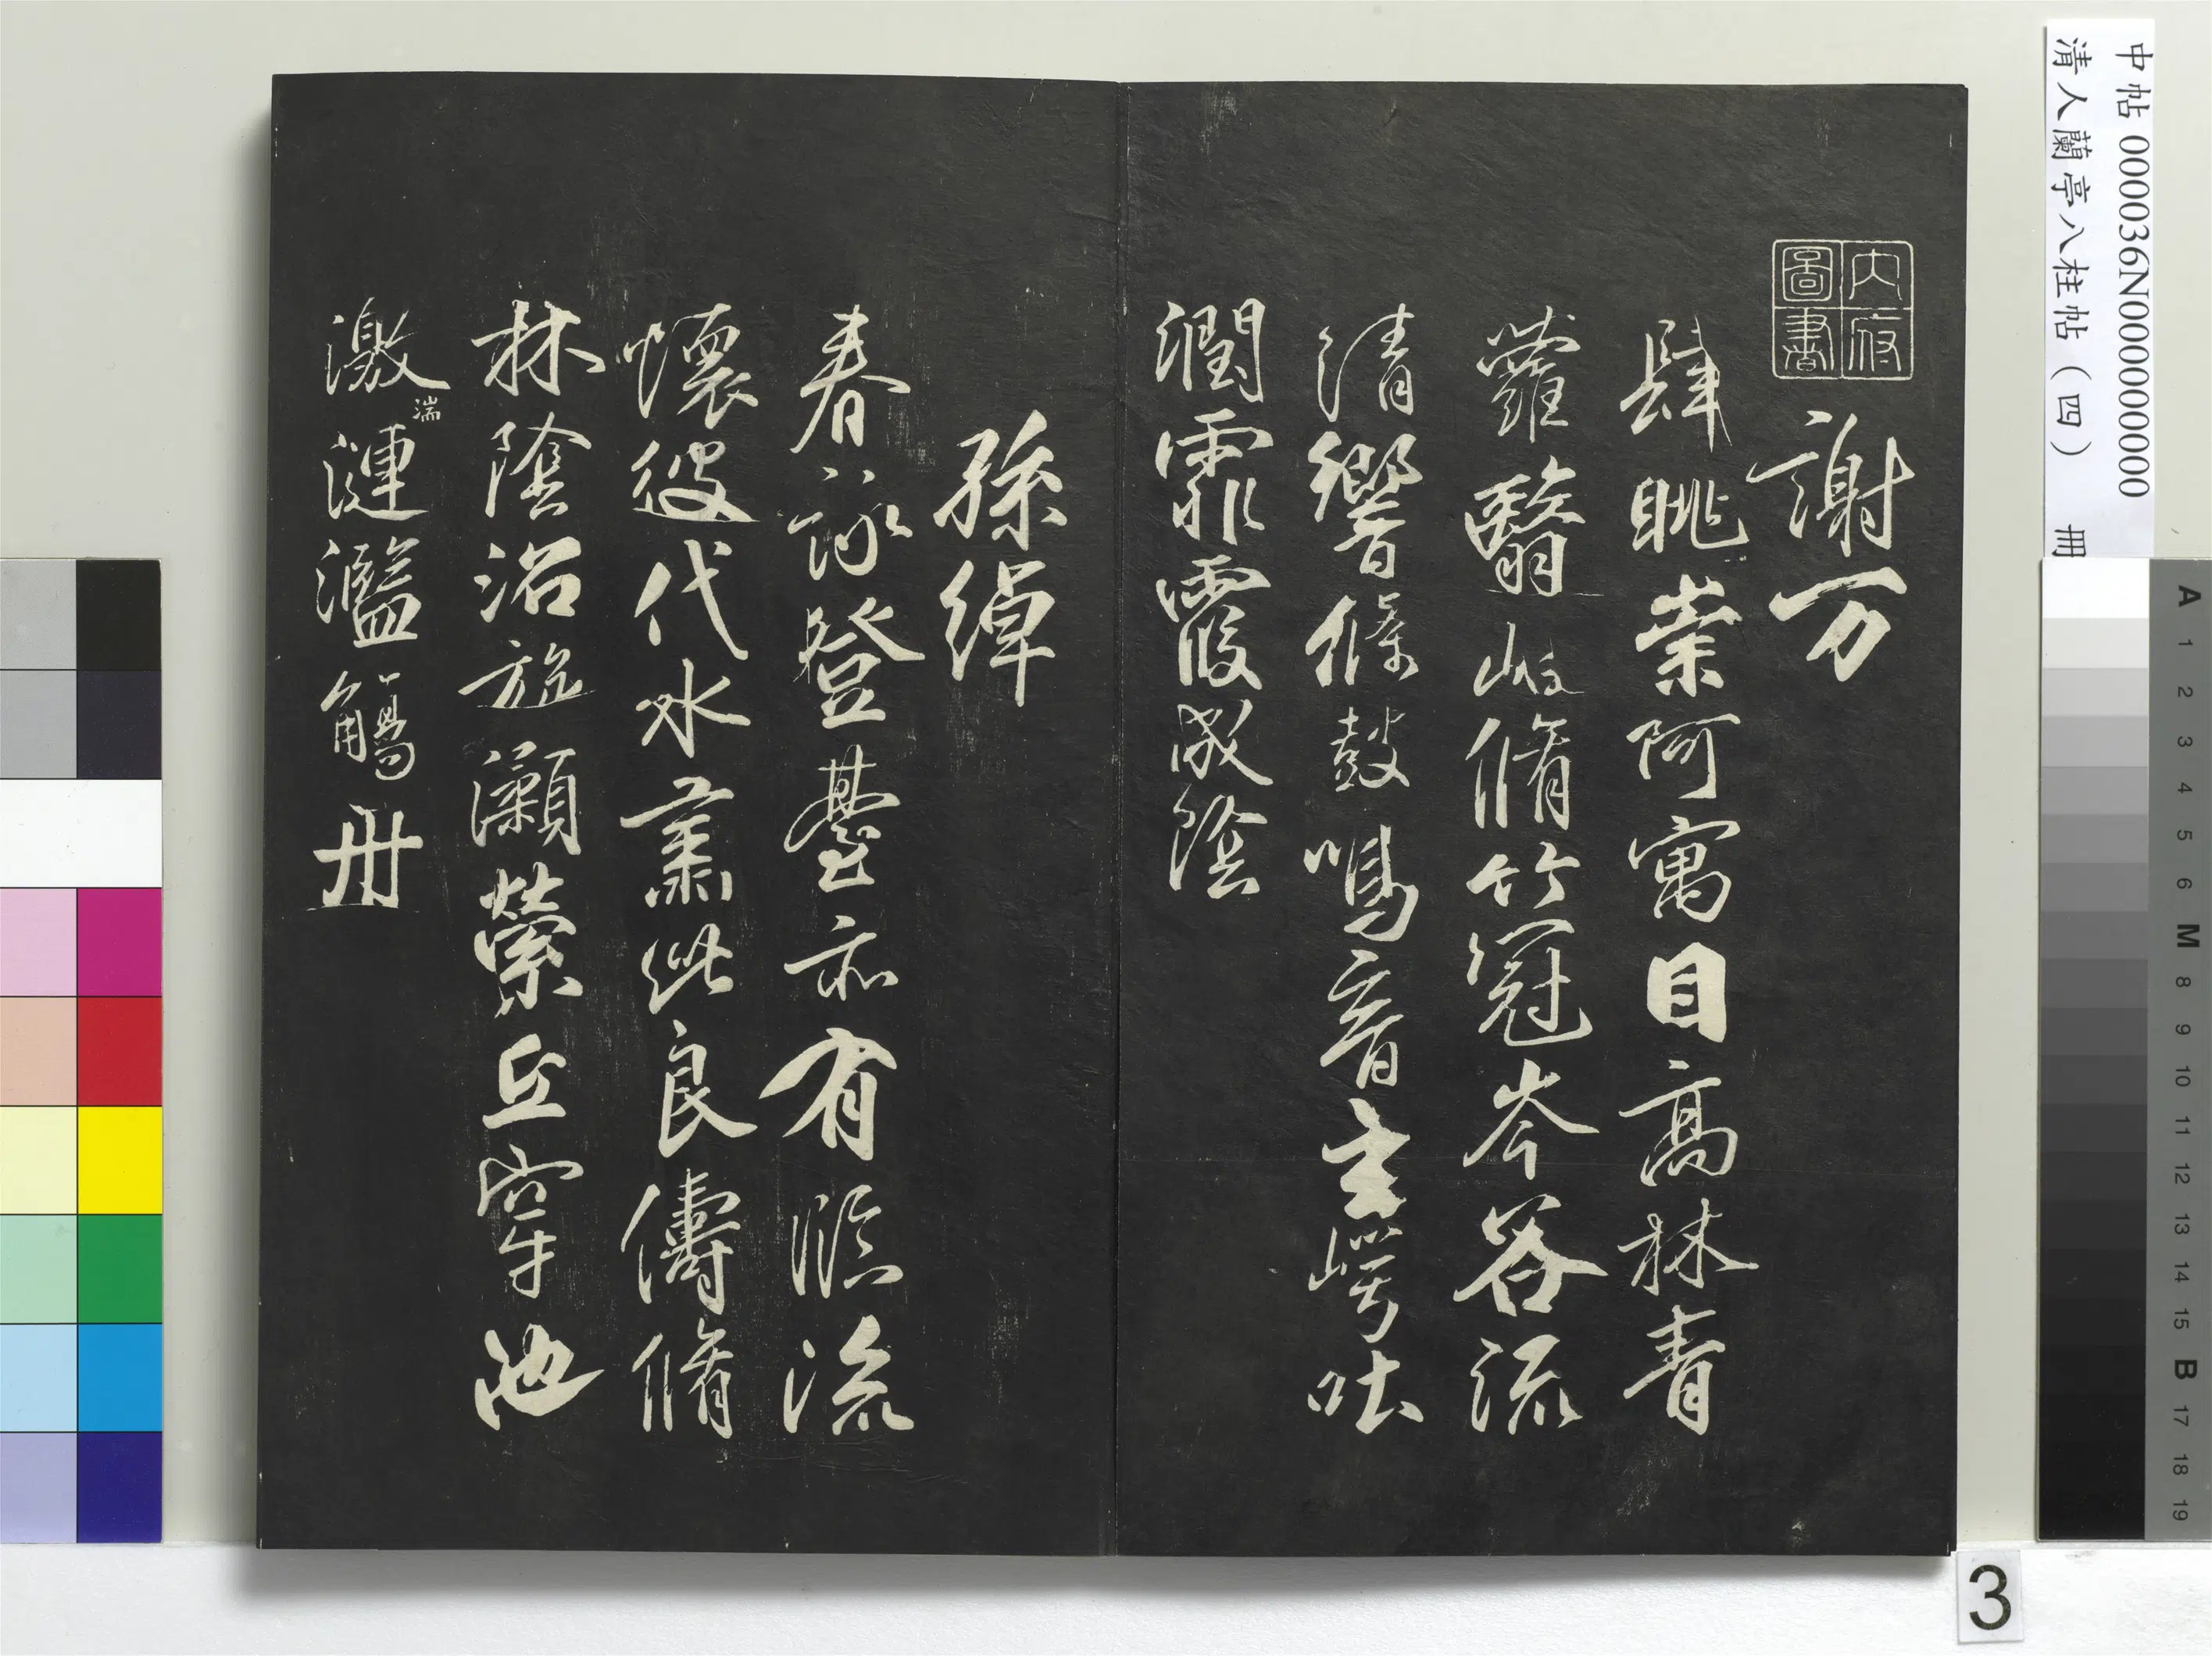 中帖 000036N000000000
清人蘭亭八柱帖（四） 冊
內府圖書
謝万
肆眺崇阿寓目高林青
蘿翳岫脩竹冠岑谷流
清響條鼓鳴音玄崿吐
潤霏霞成陰
孫綽
春詠登臺亦有臨流
懷彼代水肅此良儔脩
林陰沼旋瀨縈丘穿池
激湍漣濫觴舟
A 1 2 3 4 5 6 M 8 9 10 11 12 13 14 15 B 17 18 19
3